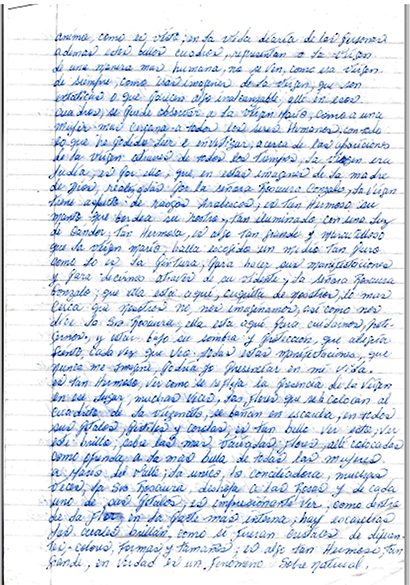 anima, como es visto, en la vida diaria de las personas
ademas estos bellos cuadros, representan a la Virgen
de una manera mas humana, no se ven, como esa Virgen
de siempre, como las imagenes de la Virgen, que son
estaticas o que parecen algo inalcanzable, que en esos
cuadros, se puede observar a la Virgen María, como a una
mujer mas cercana a todos los seres Humanos, con todo
lo que he podido leer e investigar, acerca de las apariciones
de la Virgen atraves de todos los tiempos, la Virgen era
Judia, es por ello, que en estas imagenes de la madre
de Dios, realizadas por la señora Gonzalo, la Virgen
tiene aspecto de rasgos, es tan Hermoso su
manto que bordea su rostro, tan iluminado, con una luz
de candor, tan Hermosa, es algo tan grande y maravilloso
que la Virgen María, halla escogido un medio tan puro
como lo es la pintura, para hacer sus manifestaciones
y para decirnos atraves de su vidente, la señora
Gonzalo, que ella esta aqui, cerquita de nosotros, lo mas
cerca que nosotros no nos imaginamos, asi como nos
dice la Sra, ella esta aqui para cuidarnos, prote-
gernos, y estar bajo su sombra y proteccion, que alegria
siento, cada vez que veo todas estas manifestaciones, que
nunca me imagine podria yo presenciar en mi vida.
Es tan Hermoso, ver como se refleja la presencia de la Virgen
en ese lugar, muchas veces, las flores que se le colocan al
cuadrito de la Virgencita, se bañan en escarcha, en todos
sus petalos, y, es tan bello ver esto, ver
este brillo, sobre las mas flores, alli colocadas
como ofrenda, a la mas bella de todas las mujeres
a María del Valle, la unica, la conciliadora, muchas
veces, la Sra, deshoja a las Rosas y de cada
uno de sus petalos, es impresionante ver, como detras
de la flor en la parte mas interna, hay escarchas
las cuales brillan como si fueran cristales de diferen-
tes, colores, formas y tamaños, es algo tan Hermoso, tan
Grande, en verdad es un fenomeno Sobre natural.